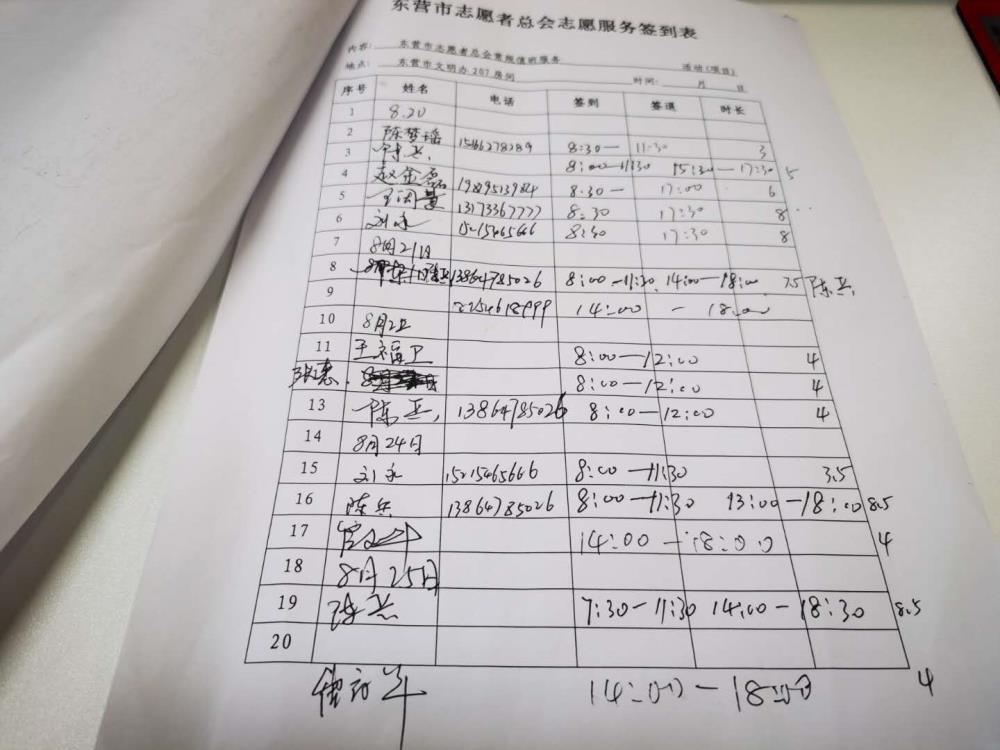 东营市志愿者总会志愿服务签到表
内容: 东营市志愿者总会常规值班服务 活动(项目)
地点: 东营市文明办207房间 时间: 月 日
序号 姓名 电话 签到 签退 时长
1 8.20
2 陈梦瑶 15466278289 8:30— 11:30 3
3 8:00—11:30 15:30—17:30 5
4 赵金磊 8.30— 17:00 6
5 13173367777 8:30 17:30 8
6 刘永 15215465666 8:30 17:30 8
7 8月21日
8 13864785026 8:00—11:30 14:00—18:00 7.5 陈兵
9 14:00 — 18:00
10 8月22
11 王福卫 8:00—12:00 4
8:00—12:00 4
13 陈兵 13864785026 8:00—12:00 4
14 8月24日
15 刘永 15215465666 8:00—11:30 3.5
16 陈兵 13864785026 8:00—11:30 13:00—18:00 8.5
17 14:00—18:00 4
18 8月25日
19 陈兵 7:30—11:30 14:00—18:30 8.5
20
14:00—18:00 4